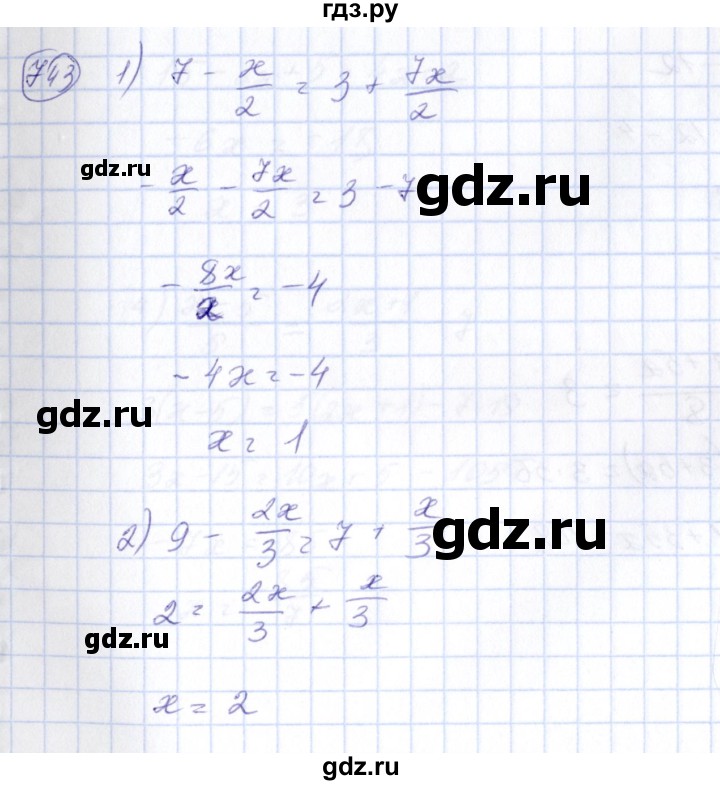 гдз.ру
743 1) 7 - x/2 = 3 + 7x/2
gdz.ru
- x/2 - 7x/2 = 3 - 7
gdz.ru
- 8x/2 = -4
- 4x = -4
gdz.ru
x = 1
2) 9 - 2x/3 = 7 + x/3
gdz.ru
2 = 2x/3 + x/3
gdz.ru
x = 2
gdz.ru